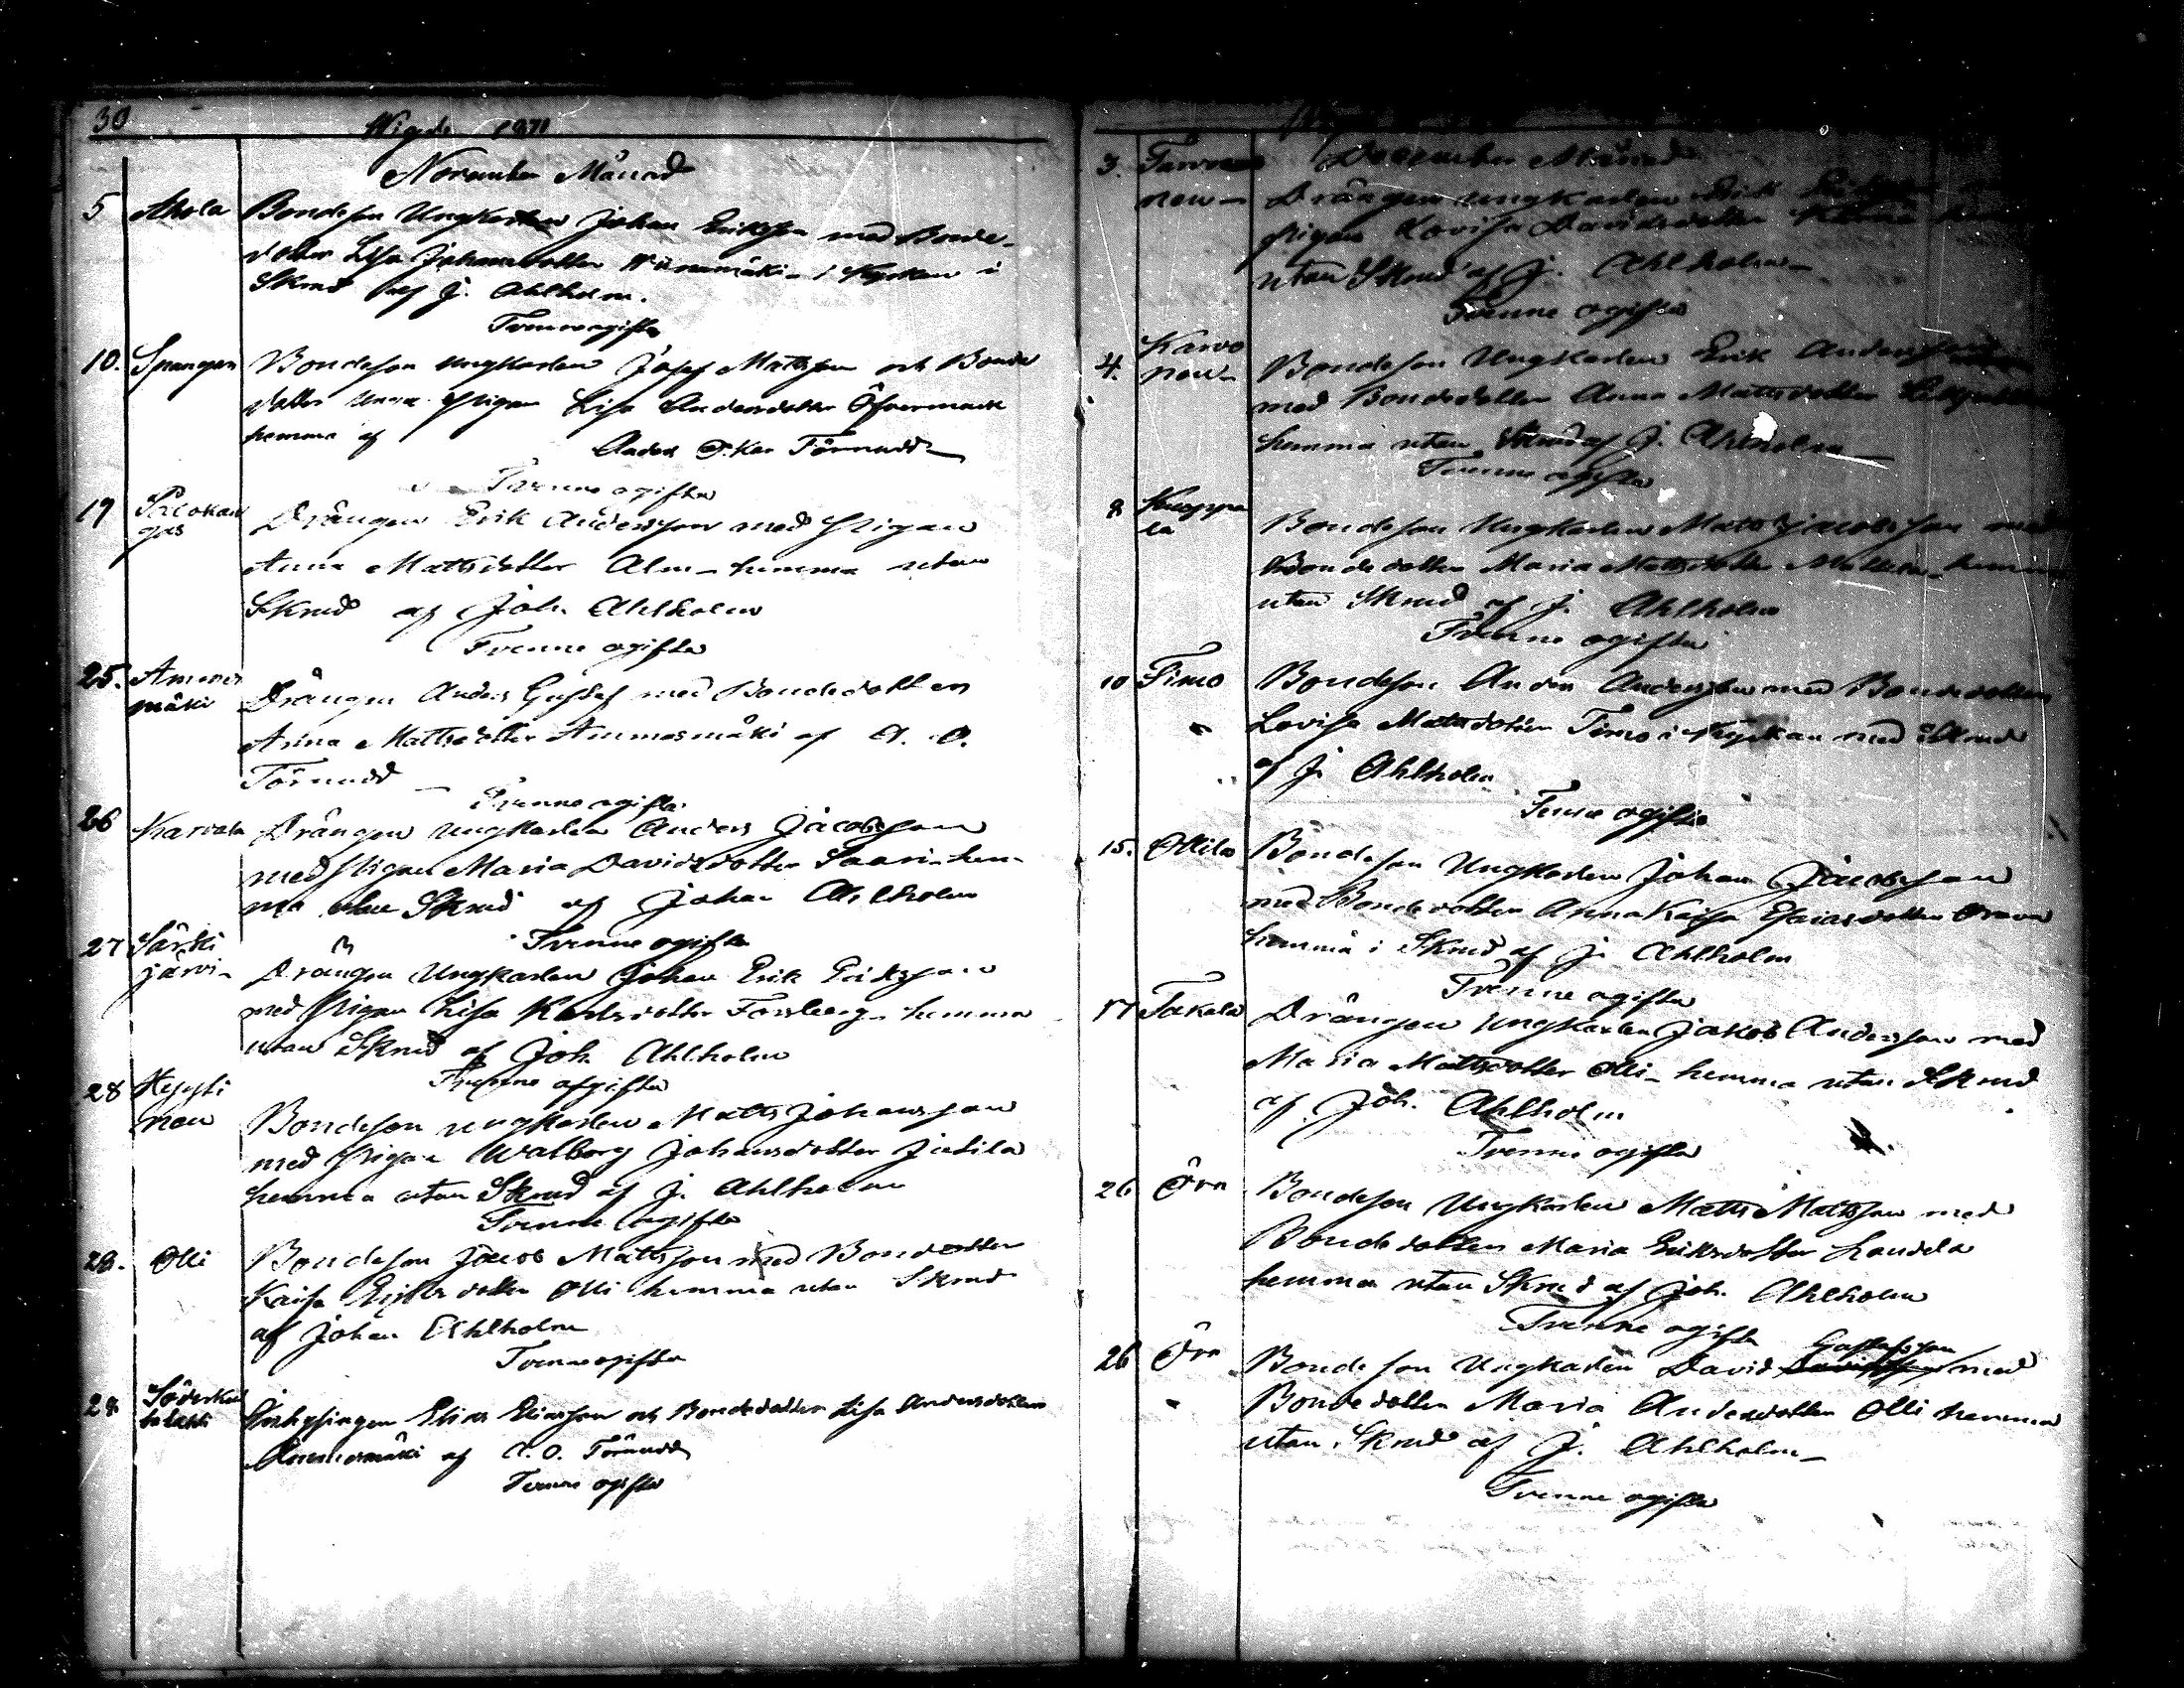 30
Wigde 1871
November Månad
5 Ahola Bondeson Ungkarlen Johan Eriksson med Bonde-
dotter Lisa Johansdotter i Kyrkan i
Skrud af J. Ahlholm.
Tvenne ogifta
10. Spangar Bondeson Ungkarlen Josef Mattsson och Bonde
dotter unga Pigan Lisa Andersdotter Öfvermark
hemma af Anders Oskar Törnudd
Tvenne ogifta
19 Palokan
gas Drängen Erik Andersson med Pigan
Anna Mattsdotter Alm - hemma utan
Skrud af Joh. Ahlholm
Tvenne ogifta
25. Ammes
mäki Drängen Anders Gustaf med Bondedotter
Anna Mattsdotter Ammesmäki af A. O.
Törnudd -
Tvenne ogifta
26 Karvala Drängen Ungkarlen Anders Jacobsson
med Pigan Maria Davidsdotter Saari - hem-
ma utan Skrud af Johan Ahlholm
Tvenne ogifta
27 Särki
järvi - Drängen Ungkarlen Johan Erik Eriksson
med Pigan Lisa Karlsdotter Forsberg - hemma
utan Skrud af Joh. Ahlholm
Tvenne ogifta
28 Hyyti
nen Bondeson ungkarlen Matts Johansson
med Pigan Walborg Johansdotter Jutila
hemma utan Skrud af J. Ahlholm
Tvenne ogifta
28. Olli Bondeson Jacob Mattsson med Bondedotter
Kaisa Eriksdotter Olli hemma utan Skrud
af Johan Ahlholm
Tvenne ogifta
28 Inhysingen Elias Eliasson och Bondedotter Lisa Andersdotter
Ammesmäki af A. O. Törnudd
Tvenne ogifta
December Månad
3. Tarvo
nen - Drängen ungkarlen Erik
Pigan Lovisa Davidsdotter
utan Skrud af J. Ahlholm -
Tvenne ogifta
4. Karvo
nen - Bondeson Ungkarlen Erik Andersson
med Bondedotter Anna Mattsdotter
hemma utan Skrud af J. Ahlholm -
Tvenne ogifta
8 Knuppa
la Bondeson Ungkarlen Matts Jacobsson med
Bondedotter Maria Mattsdotter hemma
utan Skrud af J. Ahlholm
Tvenne ogifta
10 Timo Bondeson Anders Andersson med Bondedotter
Lovisa Mattsdotter Timo i Kyrkan med Skrud
af J. Ahlholm
Tvenne ogifta
15. Ollila Bondeson Ungkarlen Johan Jacobsson
med Bondedotter Anna Kaisa Esaiasdotter
hemma i Skrud af J. Ahlholm
Tvenne ogifta
17 Takala Drängen Ungkarlen Jakob Andersson med
Maria Mattsdotter Olli - hemma utan Skrud
af Joh. Ahlholm
Tvenne ogifta
26 Öra Bondeson Ungkarlen Matts Mattsson med
Bondedotter Maria Eriksdotter Laudela
hemma utan Skrud af Joh. Ahlholm
Tvenne ogifta
26 Öra Bondeson Ungkarlen David Gustafsson med
Bondedotter Maria Andersdotter Olli hemma
utan Skrud af J. Ahlholm -
Tvenne ogifta